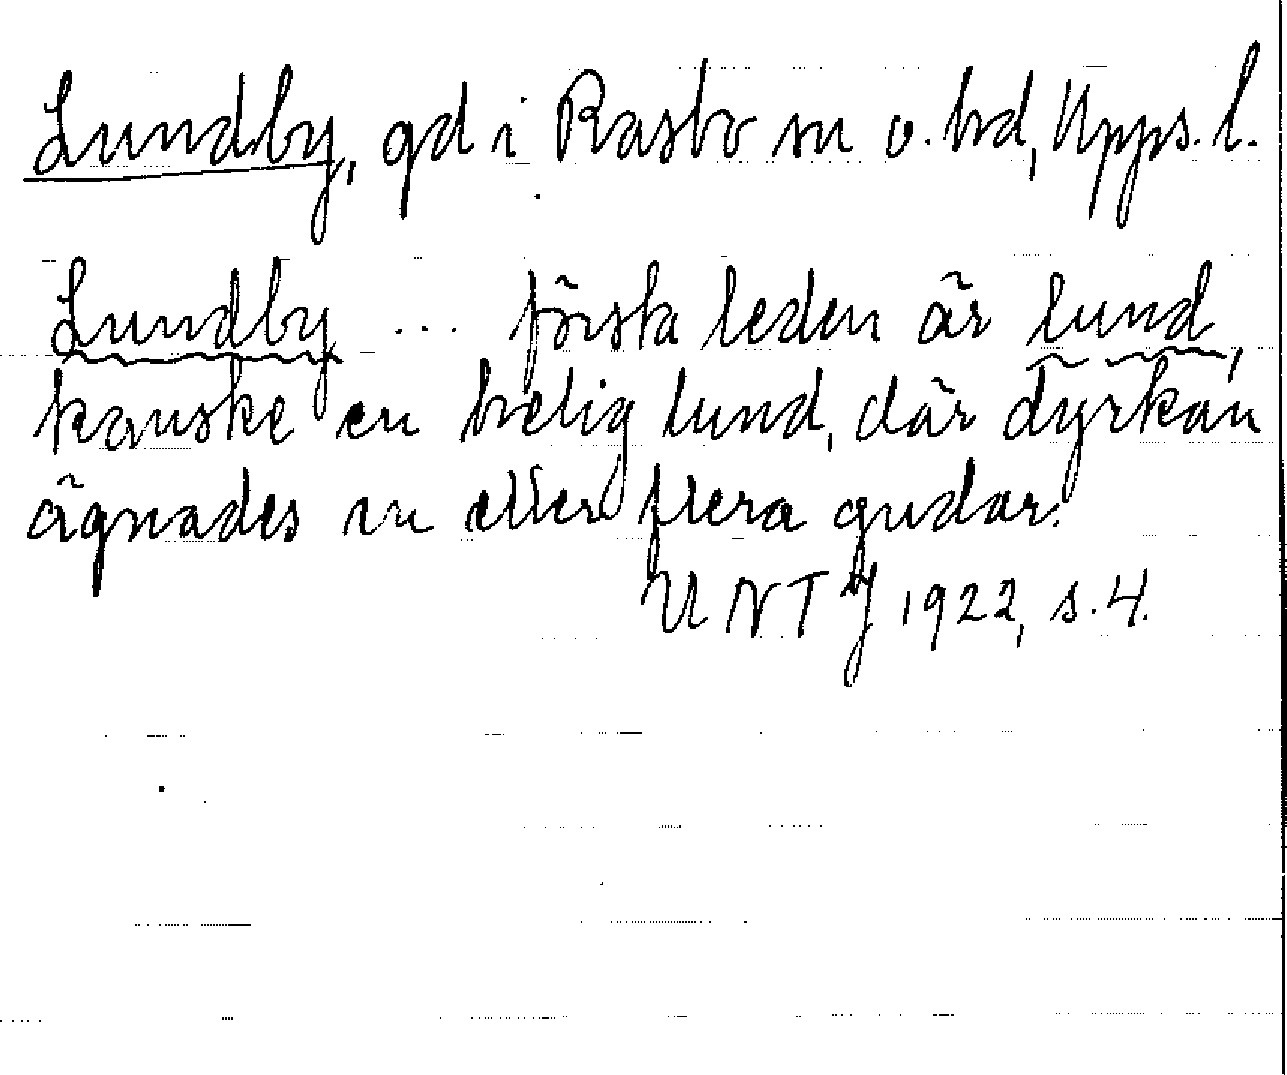 Lundby, gd i Rasbo sn o. hd, Upps. l.
Lundby ... första leden är lund,
kanske en helig lund, där dyrkan
ägnades en eller flera gudar.
UNTJ 1922, s. 4.